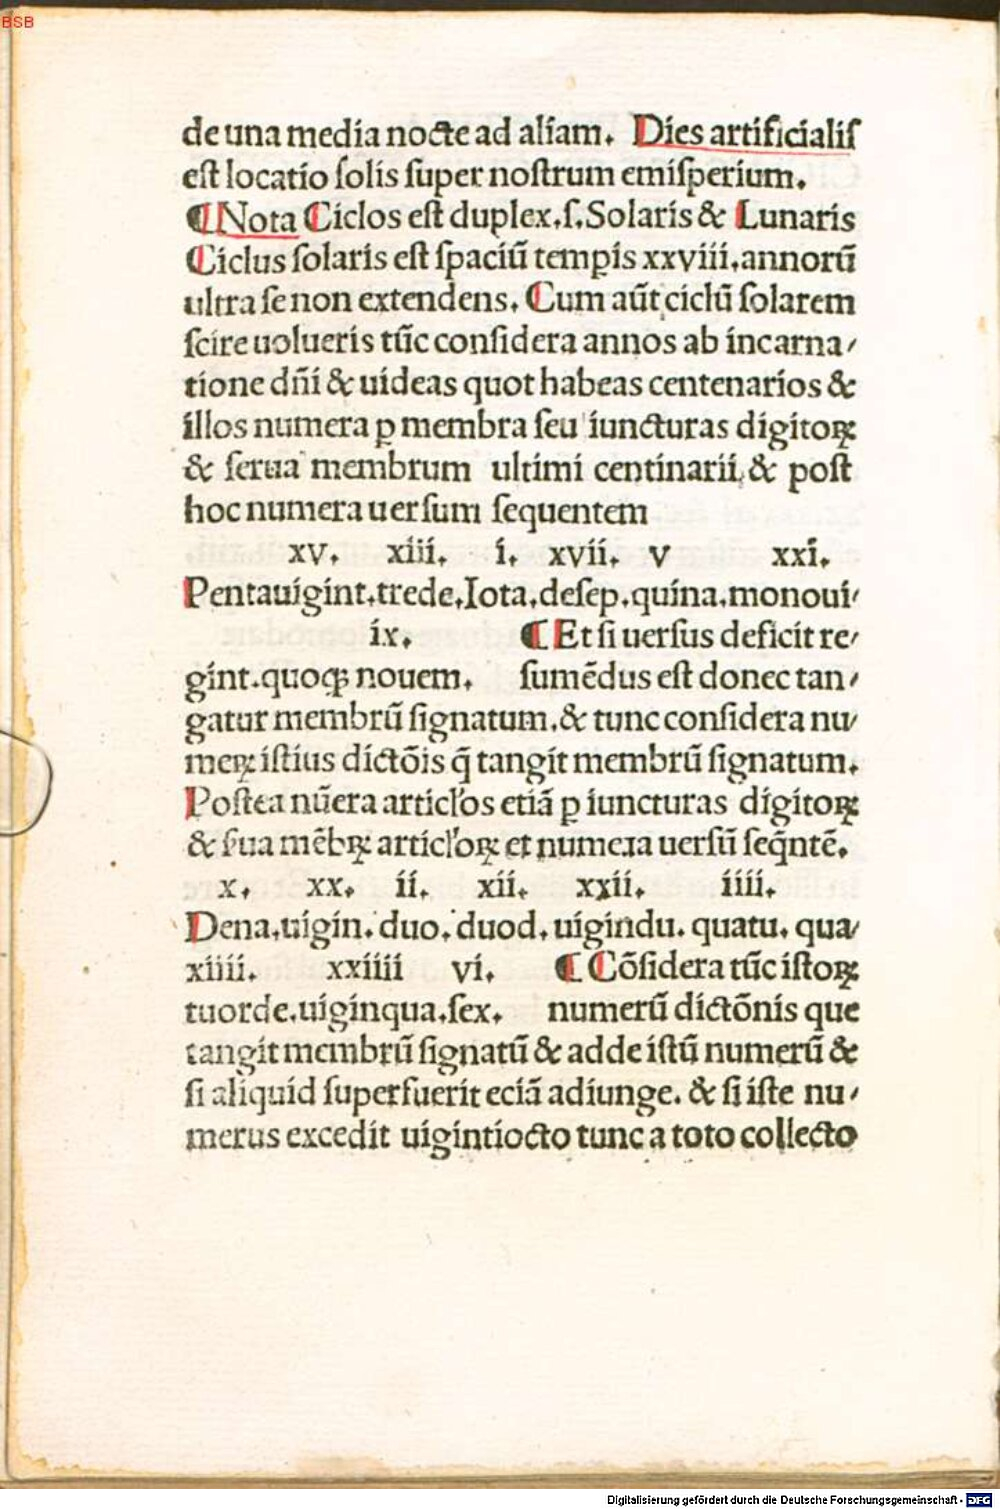 BSB
de una media nocte ad aliam. Dies artificialiſ
eſt locatio ſolis ſuper noſtrum emiſperium.
¶ Nota Ciclos eſt duplex.ſ.Solaris & Lunaris
Ciclus ſolaris eſt ſpaciū tempis xxviii.annorū
ultra ſe non extendens. Cum aūt ciclū ſolarem
ſcire uolueris tūc conſidera annos ab incarna/
tione dn̄i & uideas quot habeas centenarios &
illos numera ꝑ membra ſeu iuncturas digitoꝝ
& ſerua membrum ultimi centinarii & poſt
hoc numera uerſum ſequentem
xv. xiii. i. xvii. v xxi.
Pentauigint.trede.Iota.deſep.quina.monoui/
ix. ¶ Et ſi uerſus deficit re/
gint.quoqꝫ nouem. ſumēdus eſt donec tan/
gatur membrū ſignatum.& tunc conſidera nu/
meꝝ iſtius dictōis q̄ tangit membrū ſignatum.
Poſtea nūera articl'os etiā ꝑ iuncturas digitoꝝ
& ſ'ua mēbꝝ articl'oꝝ et numera uerſū ſeq̄ntē.
x. xx. ii. xii. xxii. iiii.
Dena.uigin.duo.duod.uigindu.quatu.qua/
xiiii. xxiiii vi. ¶ Cōſidera tūc iſtoꝝ
tuorde.uiginqua.ſex. numerū dictōnis que
tangit membrū ſignatū & adde iſtū numerū &
ſi aliquid ſuperfuerit eciā adiunge. & ſi iſte nu/
merus excedit uigintiocto tunc a toto collecto
Digitalisierung gefördert durch die Deutsche Forschungsgemeinschaft - DFG